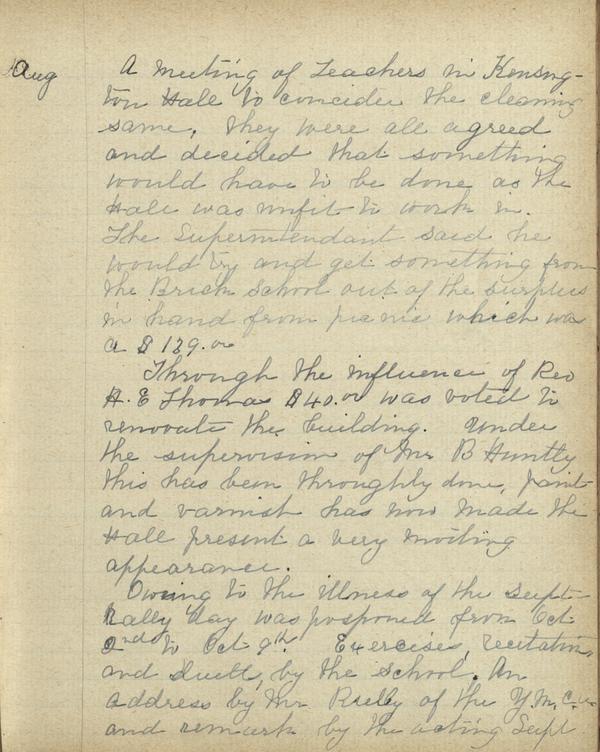 Aug
A meeting of Teachers in Kensing-
ton Hall to concider the cleaning
same, they were all agreed
and decided that something
would have to be done as the
Hall was unfit to work in.
The Superintendant said he
would try and get something from
the Brick School out of the surplus
in hand from picnic which was
a $ 129.00
Through the influence of Rev
H. E Thomas $40.00 was voted to
renovate the building. Under
the supervision of Mr B Huntly
this has been throughly done, paint
and varnish has now made the
Hall present a very inviting
appearance.
Owing to the illness of the Supt
Rally day was posponed from Oct
2nd to Oct 9th. Exercises, recitation,
and duett, by the school. An
address by Mr. of the Y.M.C.A.
and remark by the acting Supt